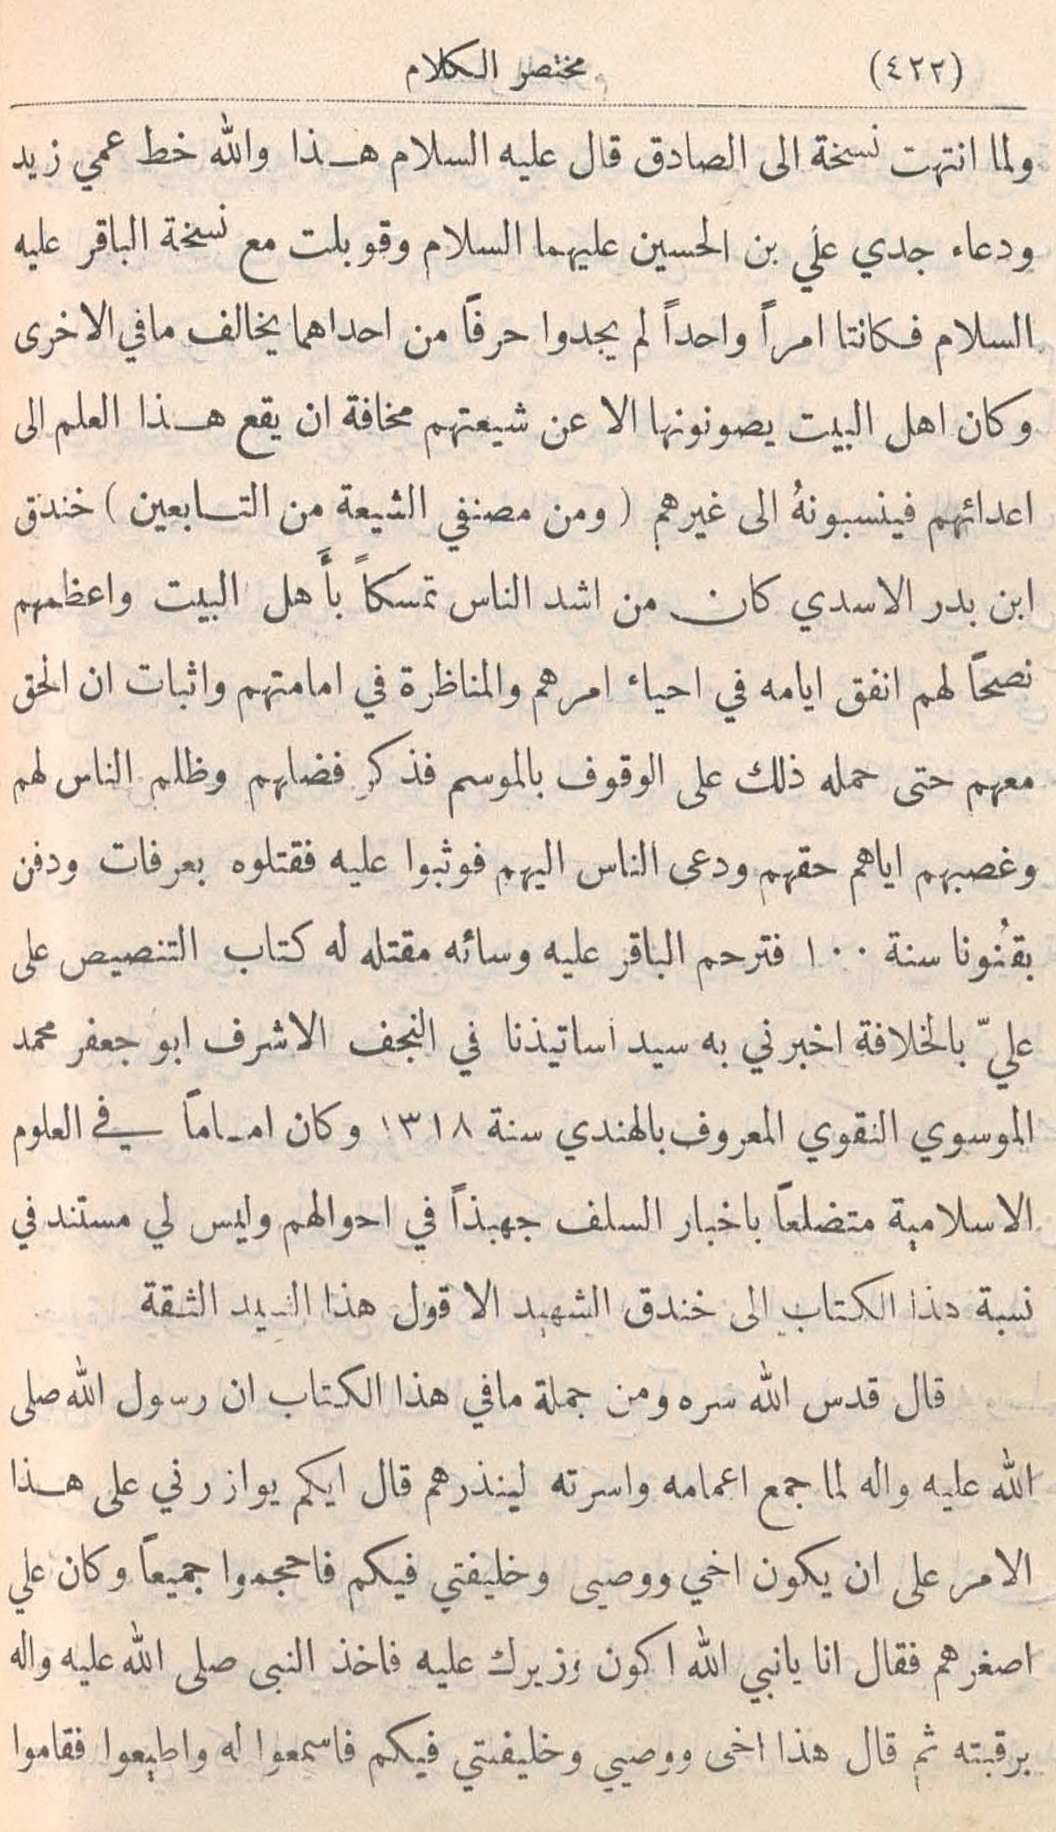 (٤٢٢) مختصر الكلام
ولما انتهت نسخة الى الصادق قال عليه السلام هـذا والله خط عمي زيد
ودعاء جدي علي بن الحسين عليهما السلام وقوبلت مع نسخة الباقر عليه
السلام فكانتا امراً واحداً لم يجدوا حرفاً من احداهما يخالف مافي الاخرى
وكان اهل البيت يصونونها الا عن شيعتهم مخافة ان يقع هـذا العلم الى
اعدائهم فينسبونهُ الى غيرهم ( ومن مصنفي الشيعة من التـابعين ) خندق
ابن بدر الاسدي كان من اشد الناس تمسكاً بأَهل البيت واعظمهم
نصحاً لهم انفق ايامه في احياء امرهم والمناظرة في امامتهم واثبات ان الحق
معهم حتى حمله ذلك على الوقوف بالموسم فذكر فضلهم وظلم الناس لهم
وغصبهم اياهم حقهم ودعى الناس اليهم فوثبوا عليه فقتلوه بعرفات ودفن
بقنُونا سنة ١٠٠ فترحم الباقر عليه وسائه مقتله له كتاب التنصيص على
عليّ بالخلافة اخبرني به سيد اساتيذنا في النجف الاشرف ابو جعفر محمد
الموسوي النقوي المعروف بالهندي سنة ١٣١٨ وكان امـاماً في العلوم
الاسلامية متضلعاً باخبار السلف جهبذاً في احوالهم وليس لي مستند في
نسبة هذا الكتاب الى خندق الشهيد الا قول هذا السيد الثقة
قال قدس الله سره ومن جملة مافي هذا الكتاب ان رسول الله صلى
الله عليه واله لما جمع اعمامه واسرته لينذرهم قال ايكم يوازرني على هـذا
الامر على ان يكون اخي ووصيى وخليفتي فيكم فاحجموا جميعاً وكان علي
اصغرهم فقال انا يانبي الله اكون وزيرك عليه فاخذ النبى صلى الله عليه واله
برقبته ثم قال هذا اخى ووصيي وخليفتي فيكم فاسمعوا له واطيعوا فقاموا